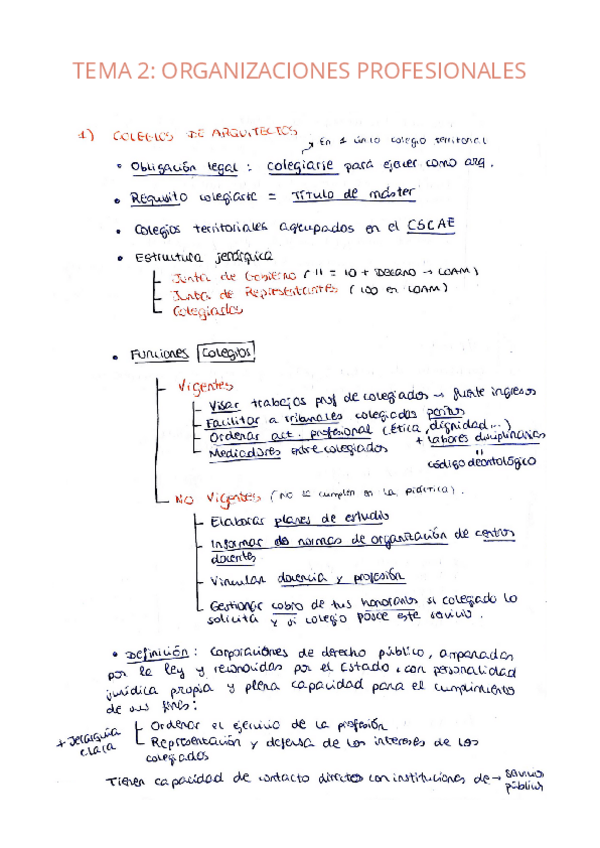 TEMA 2: ORGANIZACIONES PROFESIONALES
1) COLEGIOS DE ARQUITECTOS
→ En 1 único colegio territorial
• Obligación legal : colegiarse para ejercer como arq.
• Requisito colegiarse = Título de máster
• Colegios territoriales agrupados en el CSCAE
• Estructura jerárgica
Junta de Gobierno ( 11 = 10 + DECANO → COAM)
Junta de Representantes ( 100 en COAM)
Colegiados
• Funciones Colegios
Vigentes
Visar trabajos prof de colegiados → fuente ingresos
Facilitar a tribunales colegiados peritos
Ordenar act. profesional (ética, dignidad...)
+ labores disciplinarias
Mediadores entre colegiados
código deontológico
No Vigentes (no se cumplen en la práctica).
Elaborar planes de estudio
Informar de normas de organización de centros
docentes
Vincular docencia y profesión
Gestionar cobro de tus honorarios si colegiado lo
solicita y si colegio posee este servicio.
• Definición : corporaciones de derecho público, amparadas
por la ley y reconocidas por el Estado, con personalidad
jurídica propia y plena capacidad para el cumplimiento
de sus fines:
+ Jerarquía
clara
Ordenar el ejercicio de la profesión
Representación y defensa de los intereses de los
colegiados
Tienen capacidad de contacto directos con instituciones de → servicios
públicos